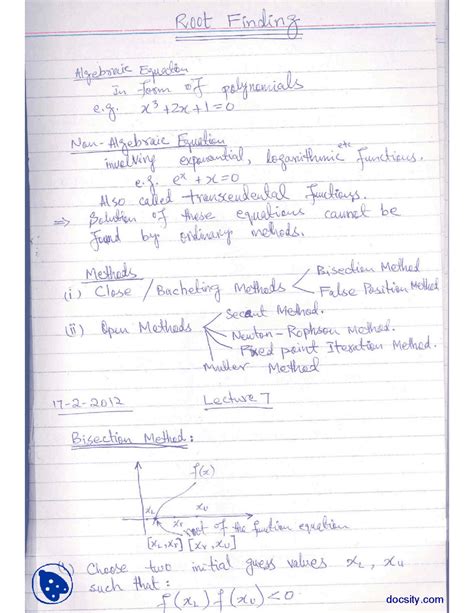 Root Finding
Algebraic Equation
In form of polynomials
e.g. x³+2x+1=0
Non-Algebraic Equation
involving exponential, logarithmic etc functions.
e.g. eˣ+x=0
Also called transcendental functions.
⇒ Solution of these equations cannot be
found by ordinary methods.
Methods
(i) Close / Bracketing Methods
Bisection Method
False Position Method
(ii) Open Methods
Secant Method.
Newton-Rophson Method.
Fixed point Iteration Method.
Muller Method
17-2-2012 Lecture 7
Bisection Method:
f(x)
x_L x_U
x_r
root of the function equation
[x_L, x_r] [x_r, x_U]
Choose two initial guess values x_L, x_U
such that:
f(x_L) f(x_U) < 0
docsity.com